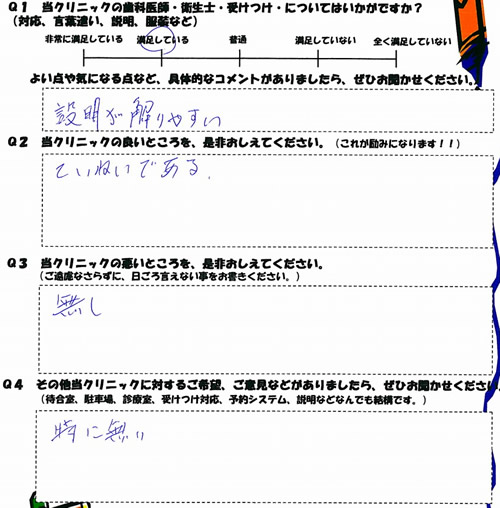 Q1 当クリニックの歯科医師・衛生士・受けつけ・についてはいかがですか?
(対応、言葉遣い、説明、服装など)
非常に満足している 満足している 普通 満足していない 全く満足していない
よい点や気になる点など、具体的なコメントがありましたら、ぜひお聞かせください。
説明が解りやすい
Q2 当クリニックの良いところを、是非おしえてください。(これが励みになります!!)
ていねいである.
Q3 当クリニックの悪いところを、是非おしえてください。
(ご遠慮なさらずに、日ごろ言えない事をお書きください。)
無し
Q4 その他当クリニックに対するご希望、ご意見などがありましたら、ぜひお聞かせください
(待合室、駐車場、診療室、受けつけ対応、予約システム、説明などなんでも結構です。)
特に無い